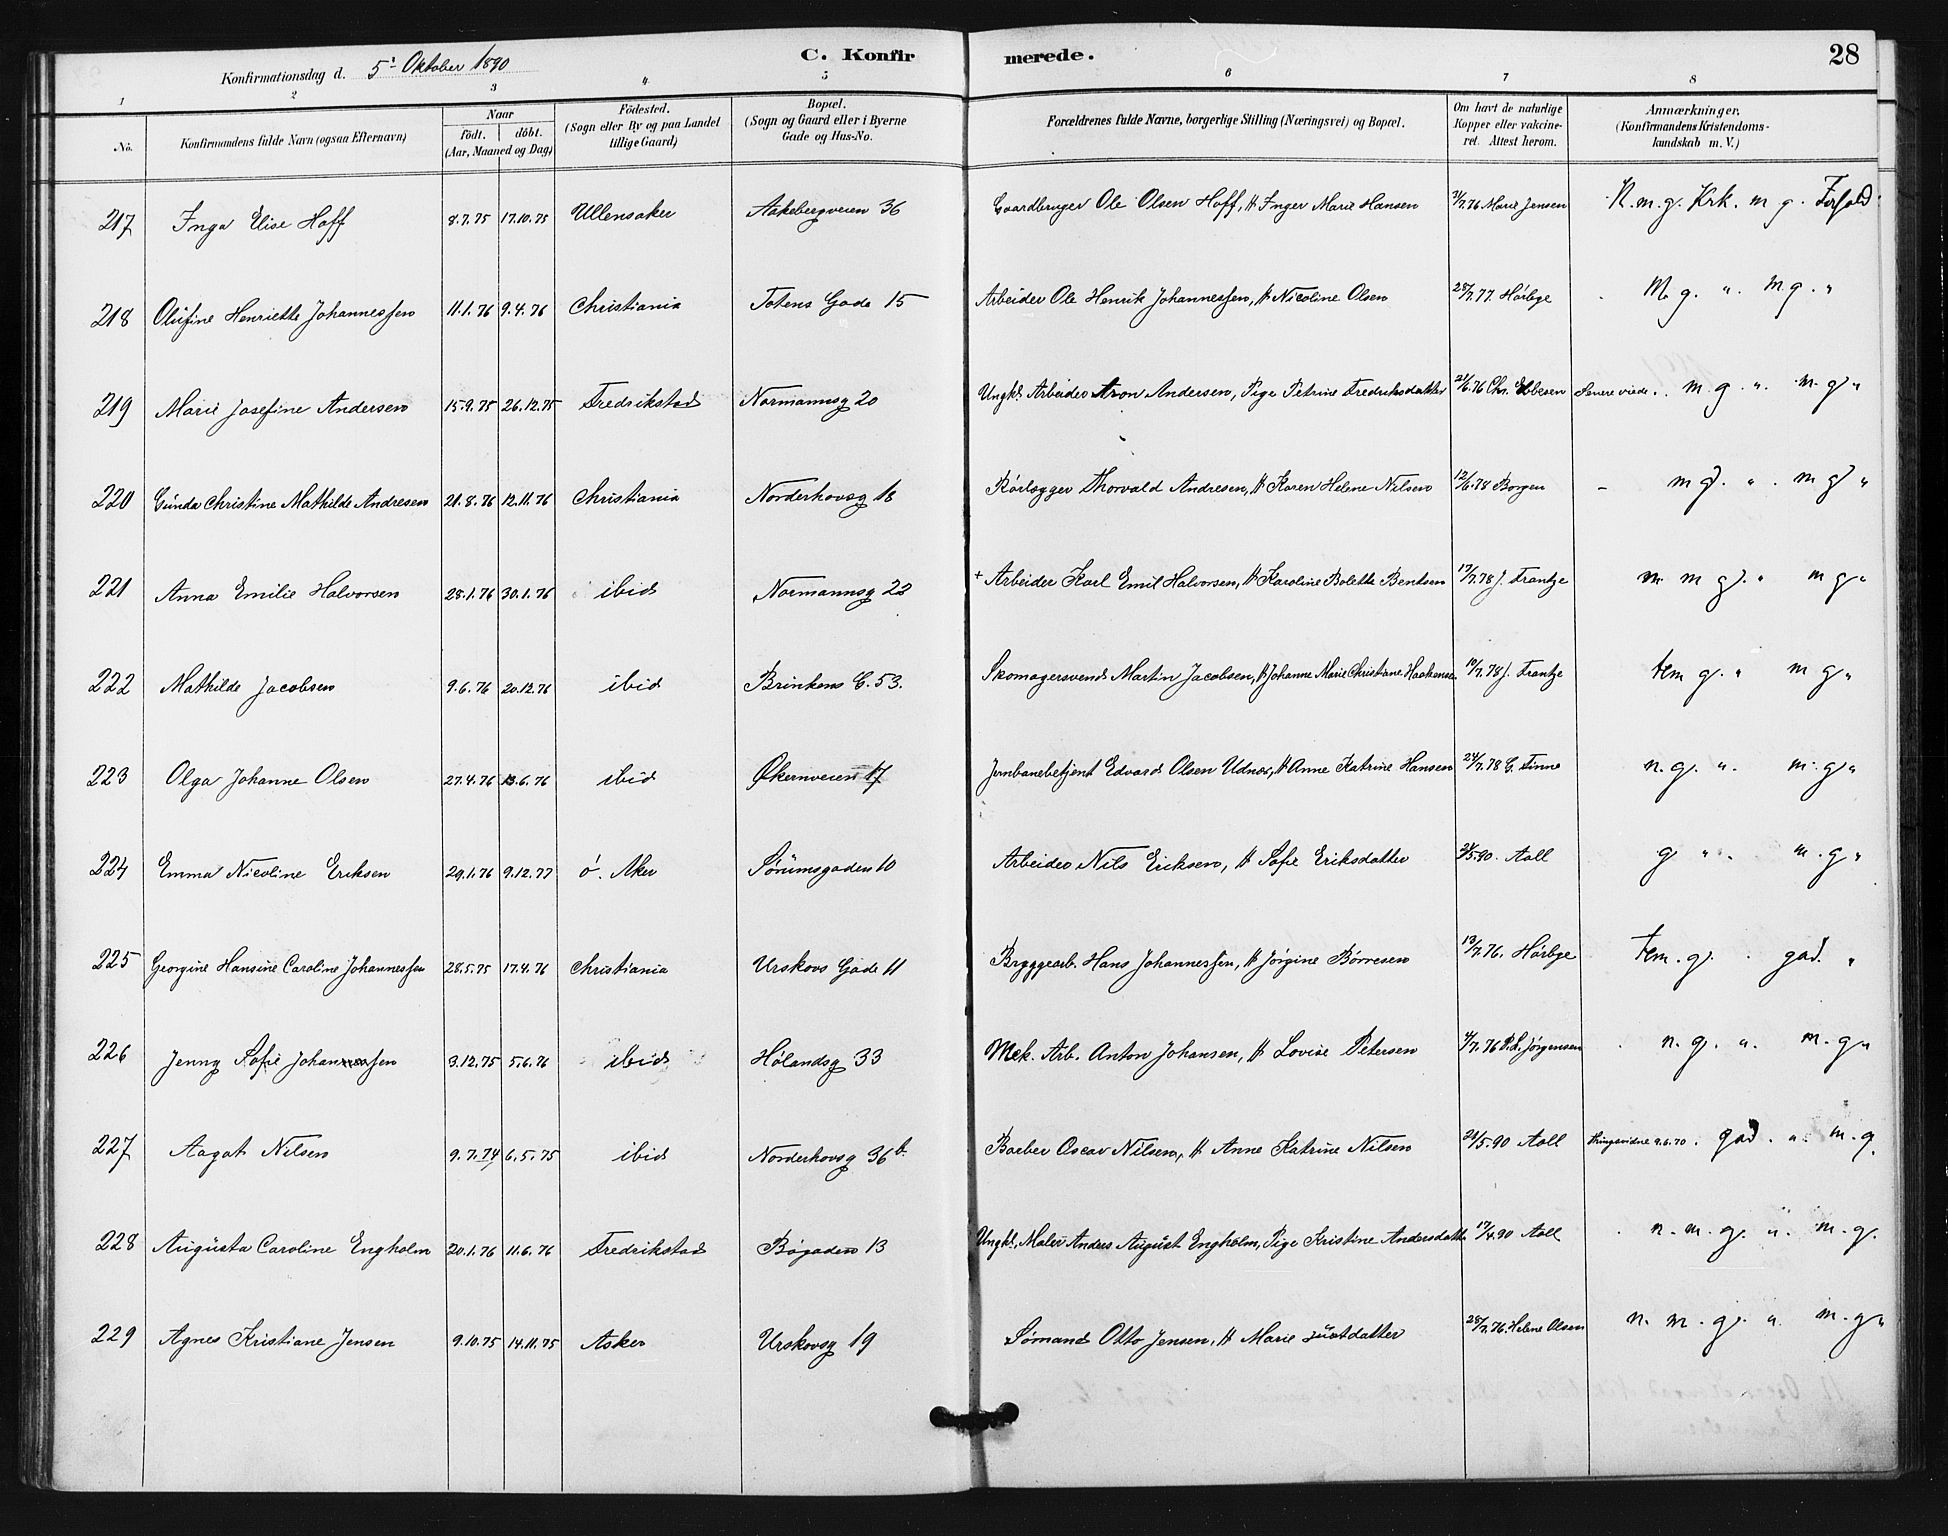 Konfirmationsdag d. 5' Oktober 1890
C. Konfirmerede.
28
1 2 3 4 5 6 7 8
No. Konfirmandens fulde Navn (ogsaa Efternavn) Naar födt. döbt. (Aar, Maaned og Dag) Födested. (Sogn eller By og paa Landet tillige Gaard) Bopæl. (Sogn og Gaard eller i Byerne Gade og Hus-No. Forældrenes fulde Navne, borgerlige Stilling (Næringsvei) og Bopæl. Om havt de naturlige Kopper eller vakcineret. Attest herom. Anmærkninger. (Konfirmandens Kristendomskundskab m. V.)
217 Inga Elise Hoff 8.7.75 17.10.75 Ullensaker Aakebergveien 36 Gaardbruger Ole Olsen Hoff, H Inger Marie Hansen 7.76 Marie Jensen N. m. g. Krk. m g. Forhold
218 Olufine Henriette Johannessen 11.1.76 9.4.76 Christiania Totens Gade 15 Arbeider Ole Henrik Johannessen, H Nicoline Olsen 28/7.77. Hörbye M. g. " m g. "
219 Marie Josefine Andersen 15.9.75 26.12.75 Fredrikstad Normannsg 20 Ungkl. Arbeider Aron Andersen, Pige Petrine Fredriksdatter 21/6.76 Chr. Ebbesen Senere viede. m. g. " m. g. "
220 Gunda Christine Mathilde Andresen 21.8.76 12.11.76 Christiania Norderhovsg 18 Rörlægger Thorvald Andresen, H Karen Helene Nilsen 12/6.78 Borgen – m g. " m g. "
221 Anna Emilie Halvorsen 28.1.76 30.1.76 ibid Normannsg 22 + Arbeider Karl Emil Halvorsen, H Karoline Bolette Bentsen 17/7.78 J. Frantze m g. " m g. "
222 Mathilde Jacobsen 9.6.76 20.12.76 ibid Brinkens G. 53. Skomagersvend Martin Jacobsen, H Johanne Marie Christiane Haakensen 10/7.78 J. Frantze tem g. " m g. "
223 Olga Johanne Olsen 27.4.76 13.6.76 ibid Økernveien 17 Jernbanebetjent Edvard Olsen Udnæs, H Anne Katrine Hansen 24/7.78 G. Finne n. g. " m. g. "
224 Emma Nicoline Eriksen 29.1.76 9.12.77 ö. Aker Sörumsgaden 10 Arbeider Nils Eriksen, H Sofie Eriksdatter 5.90. Aall g " m. g. "
225 Georgine Hansine Caroline Johannessen 28.5.75 17.4.76 Christiania Urskovs Gade 11 Bryggearb. Hans Johannessen, H Jörgine Börresen 13/7.76. Hörbye tem. g. god. "
226 Jenny Sofie Johannessen 3.12.75 5.6.76 ibid Hölandsg 33 Mek. Arb. Anton Johansen, H Lovise Petersen 4/7.76 P.L. Jörgensen n. g. " m. g. "
227 Aagot Nilsen 9.7.74 6.5.75 ibid Norderhovsg 36 b. Barber Oscar Nilsen, H Anne Katrine Nilsen 24/5.90 Aall 9.6.70. god. " m. g.
228 Augusta Caroline Engholm 20.1.76 11.6.76 Fredrikstad Bögaden 13 Ungkl. Maler Anders August Engholm, Pige Kristine Andersdatt. 17/4.90 Aall n. m. g. " m. g.
229 Agnes Kristiane Jensen 9.10.75 14.11.75 Asker Urskovsg 19 Sömand Otto Jensen, H Marie Justdatter 28/7.76. Helene Olsen n. m. g. " m. g. "